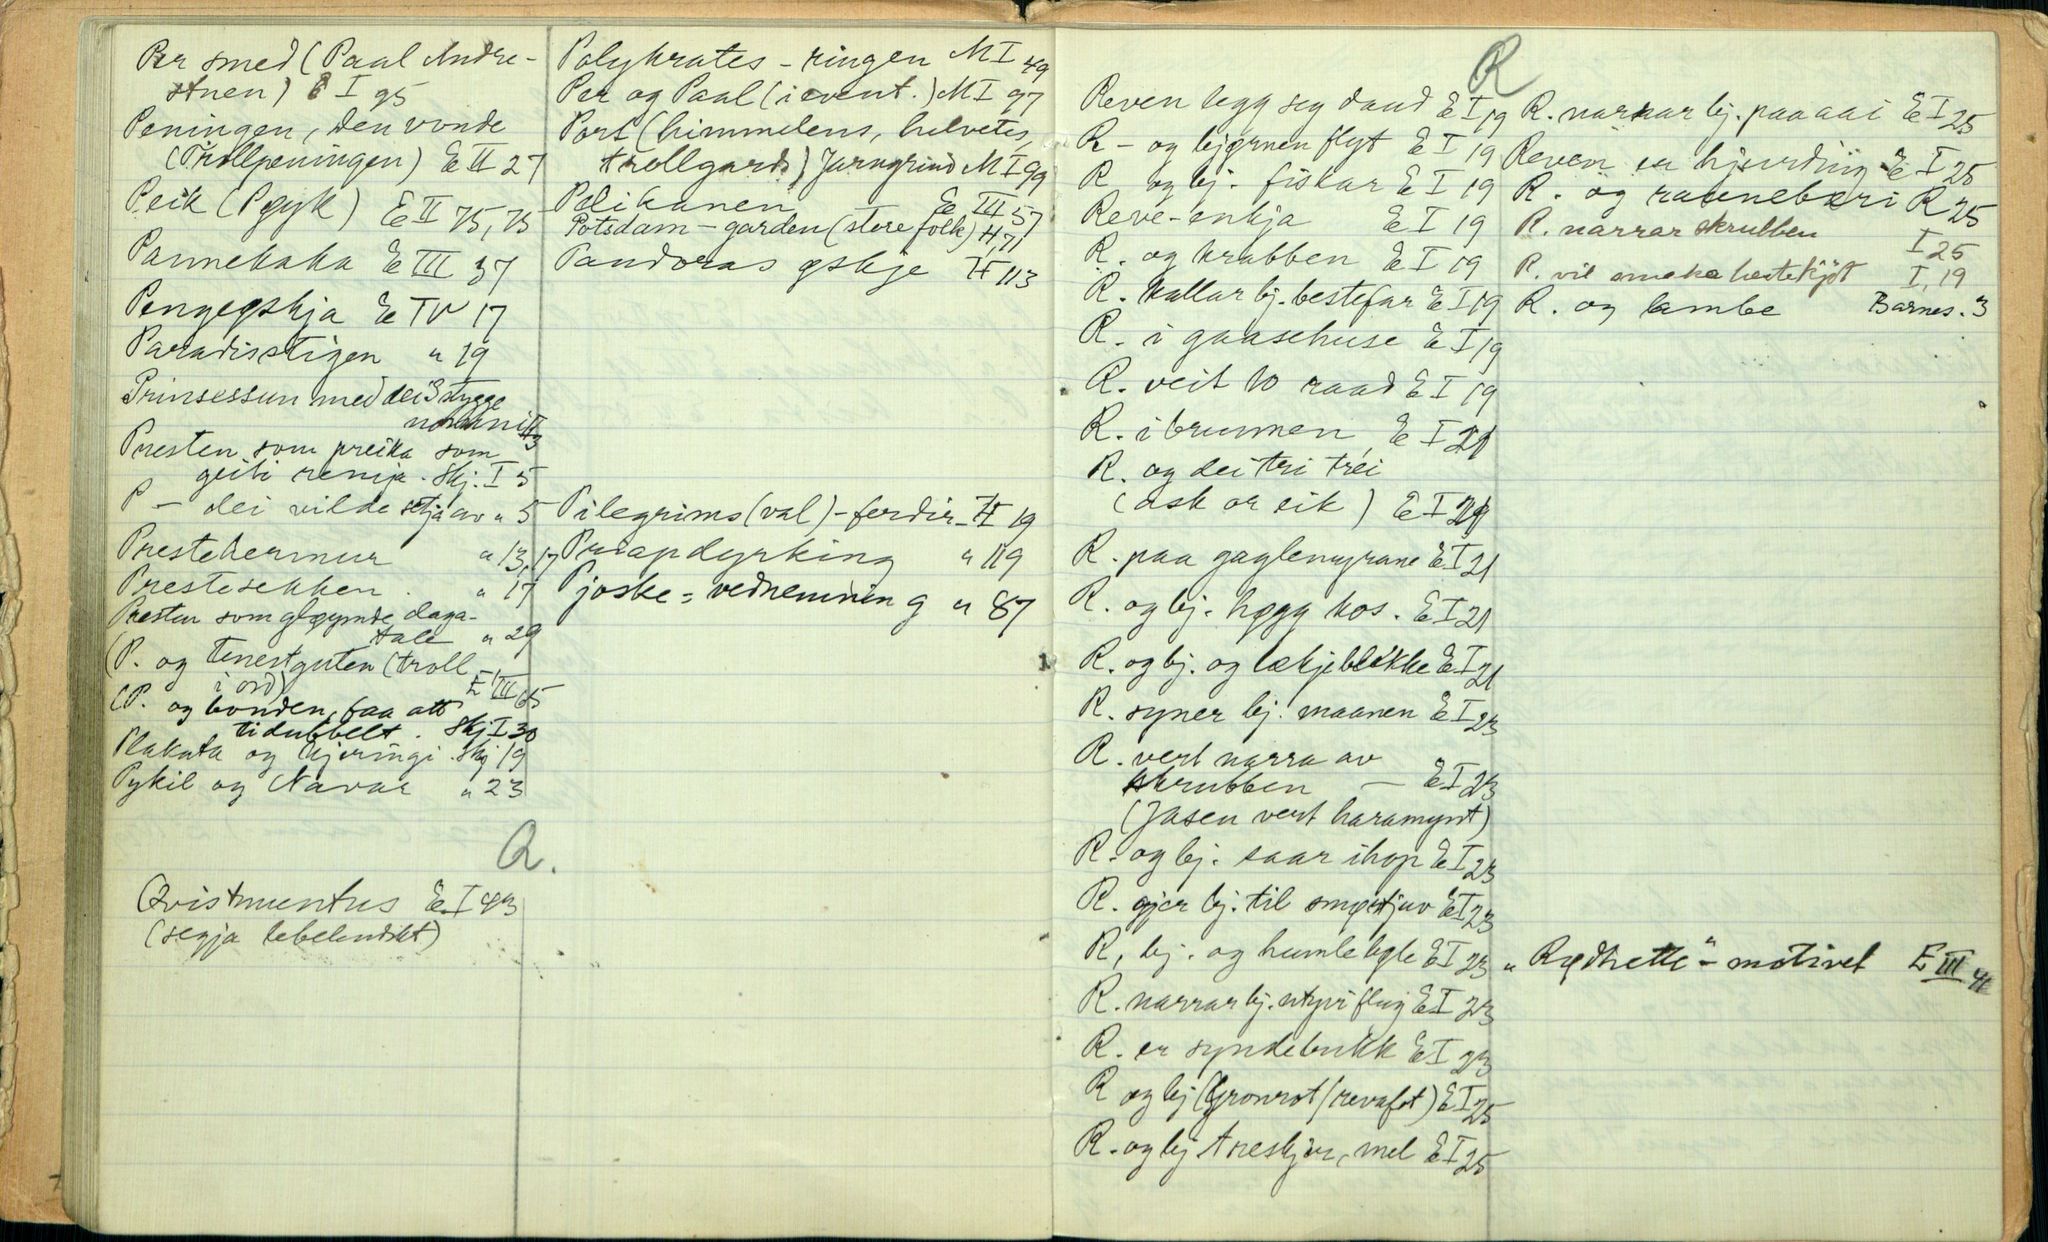 Per smed (Paal Andre-
stuen) E I 95
Peningen, den vonde
(Trollpeningen) E II 27
Peik (Pøyk) E II 75, 75
Pannekaka E III 37
Pengeøskja E IV 17
Paradisstigen " 19
Prinsessun med dei 3 stygge
Presten som preika som
geiti renja. Skj. I 5
P - dei vilde setja av " 5
Prestehermur " 13, 17
Prestesekken . " 17
Presten som gløymde daga-
tale " 29
(P. og tenestguten (troll
i ord) E III 65
(P. og bonden, faa att
tidubbelt. Skj I 30
Plakata og kjeringi. Skj 19
Pykil og Navar " 23
Q.
Qvistmuntus E. I 93
(segja
Polykrates - ringen M I 49
Per og Paal (i event.) M I 97
Port (himmelens, helvetes,
trollgards) Jarngrind M I 99
Pelikanen E III 57
Potsdam - garden (store folk) H 71
Pandoras øskje H 113
Pilegrims (val) - ferdir - H 19
Priapdyrking " 119
Pjoske = vednemning " 87
R
Reven legg seg daud E I 19
R - og bjørnen flyt E I 19
R og bj. fiskar E I 19
Reve-enkja E I 19
R. og krabben E I 19
R. kallar bj. bestefar E I 19
R. i gaasehuse E I 19
R. veit 10 raad E I 19
R. i brunnen E I 21
R. og dei tri trei
(ask or eik) E I 21
R. paa gaglemyrane E I 21
R. og bj. høgg kos. E I 21
R. og bj. og lækjeblikke E I 21
R. syner bj. maanen E I 23
R. vert narra av
skrubben - E I 23
(Jasen vert haramynt)
R. og bj. saar ihop E I 23
R. gjer bj. til smørtjuv E I 23
R, bj. og humlebøle E I 23
R. narrar bj. utyvi flug E I 23
R. er syndebukk E I 23
R og bj (gronrot/revafot) E I 25
R. og bj treskjer, mel E I 25
R. narrar bj. paa aai E I 25
Reven er hjurding E I 25
R. og raunebæri R 25
R. narrar skrubben I 25
R. vil smaka hestekjöt I, 19
R. og lambe Barnes. 3
"Rødhette" - motivet E III 41